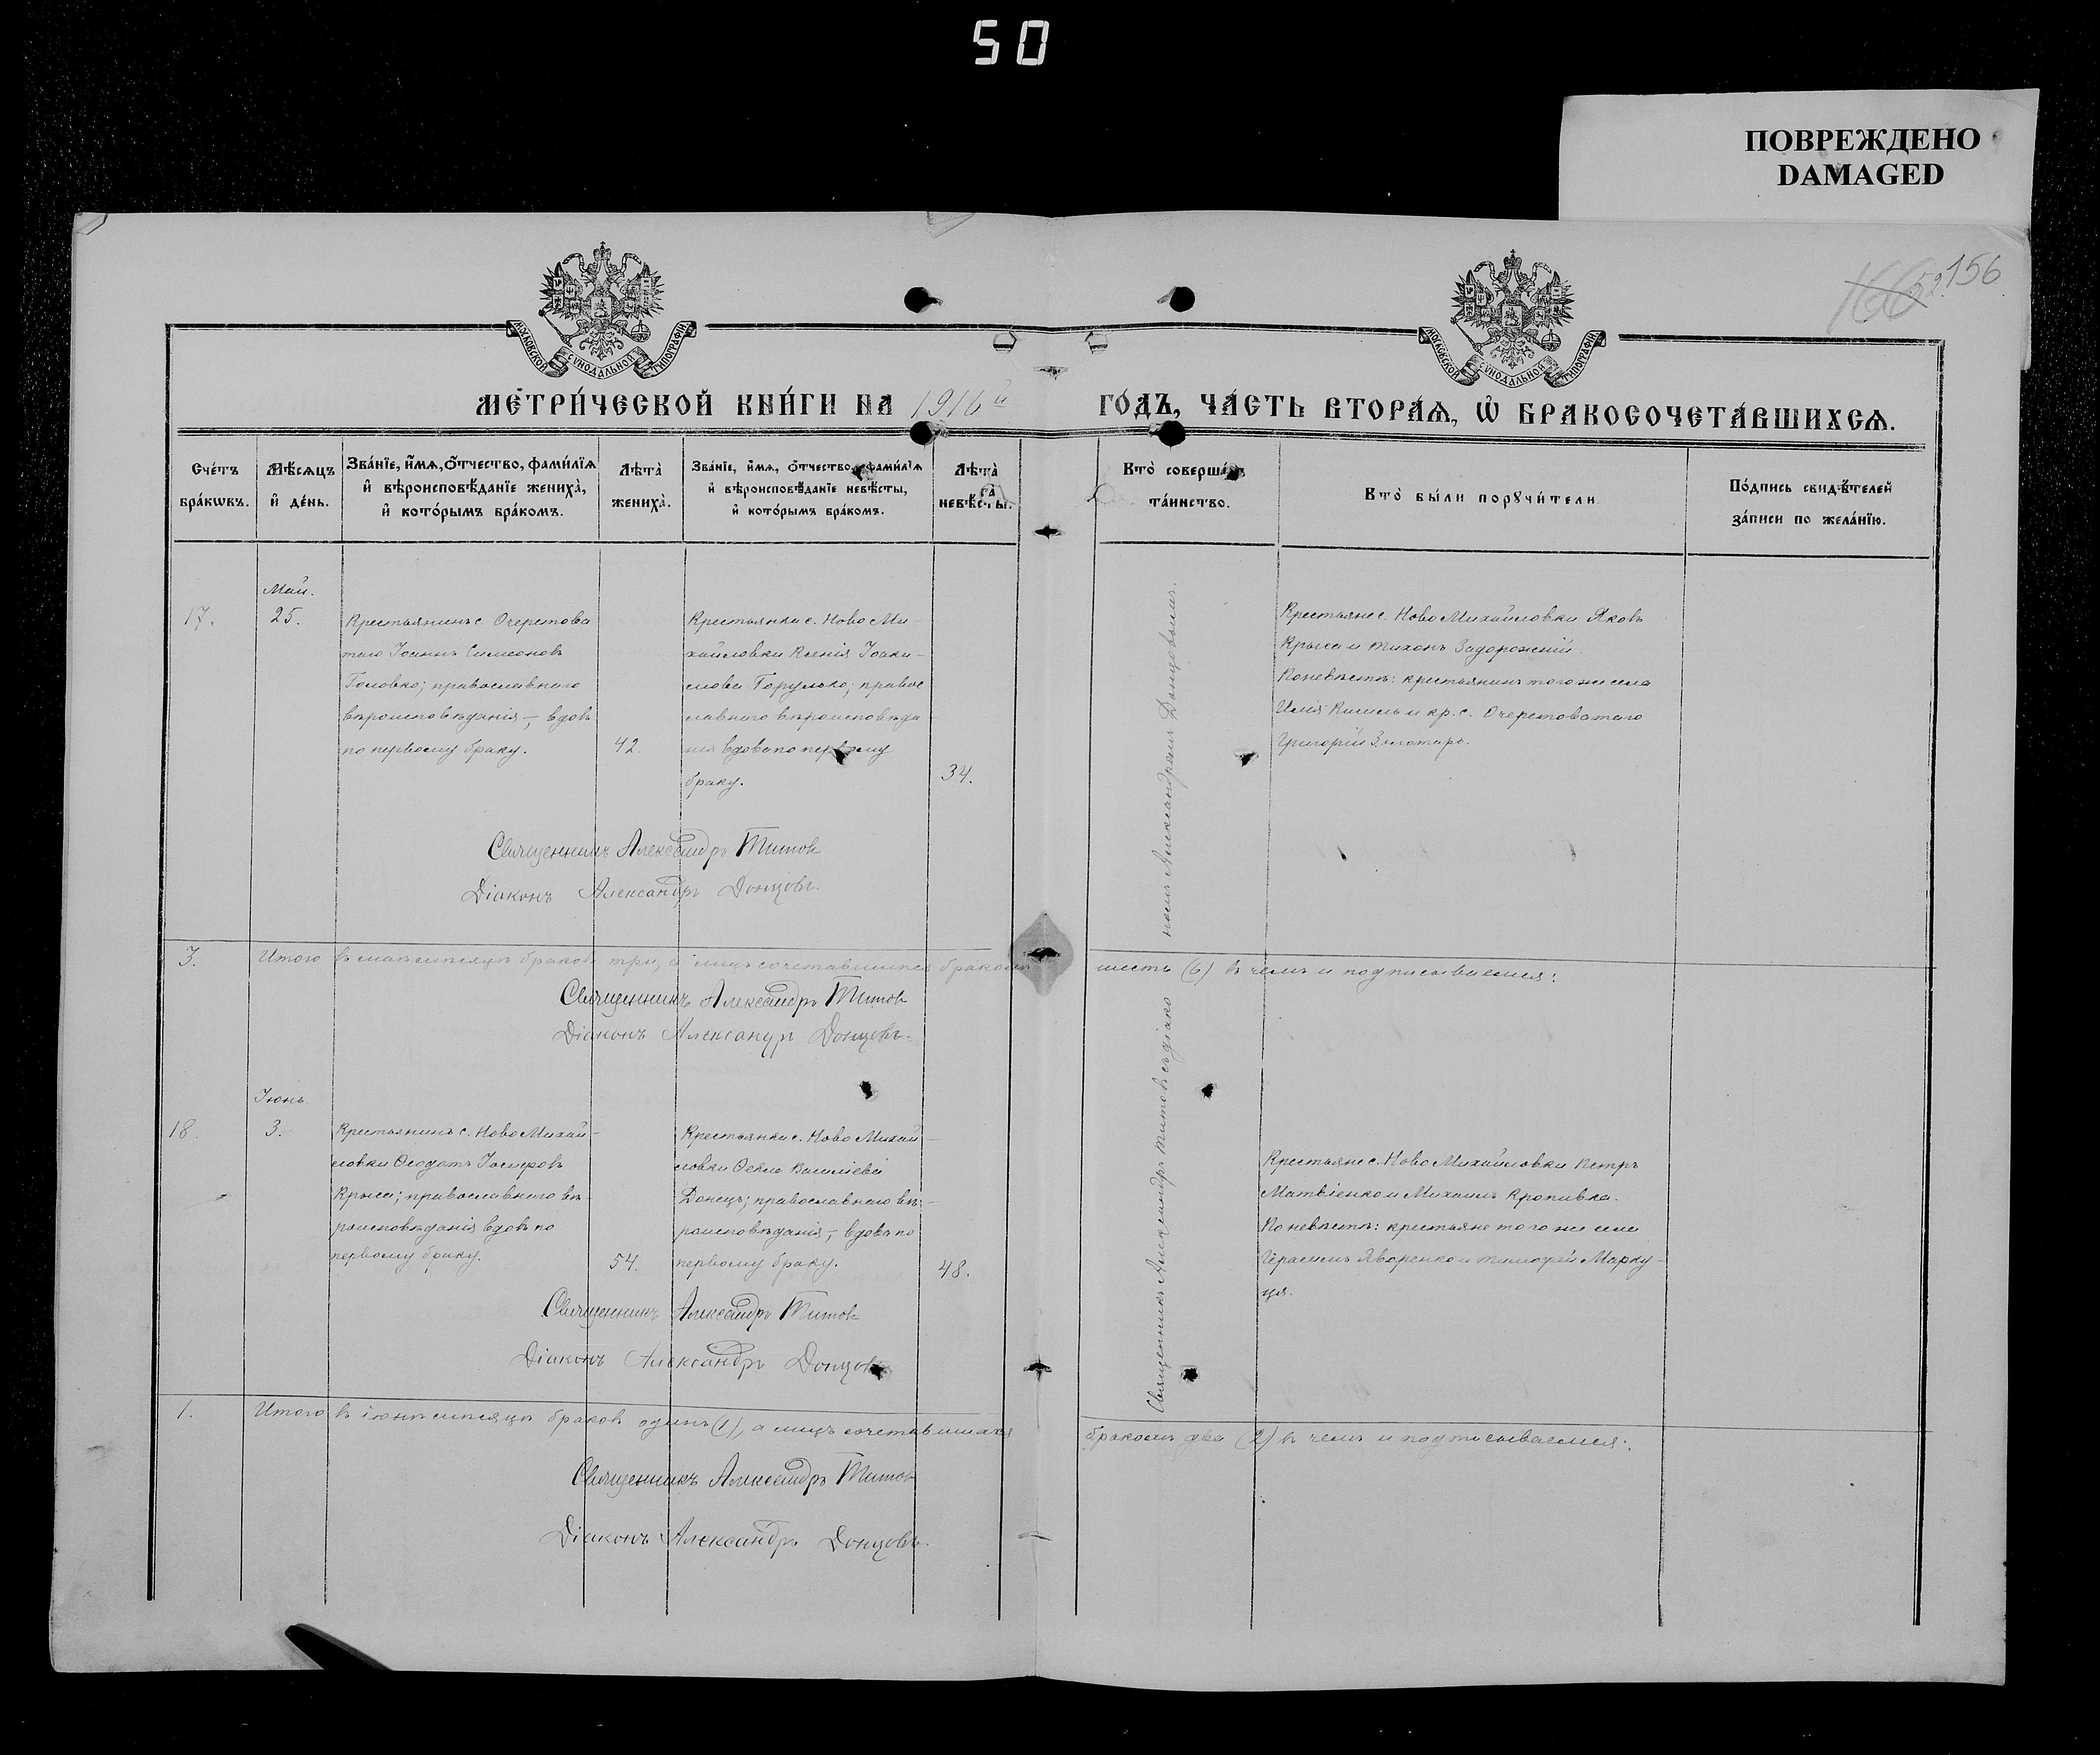 50
ПОВРЕЖДЕНО
DAMAGED
156
52.
МОСКОВСКОЙ СѴНОДАЛЬНОЙ ТИПОГРАФІИ
МОСКОВСКОЙ СѴНОДАЛЬНОЙ ТИПОГРАФІИ
МЕТРИ́ЧЕСКОЙ КНИ́ГИ НА 1916й ГО́ДЪ, ЧА́СТЬ ВТОРА́Ѧ, Ѽ БРАКОСОЧЕТА́ВШИХСѦ.
Сче́тъ бра́кѡвъ.
Мѣ́сѧцъ и҆ де́нь.
Зва́нїе, и҆́мѧ, ѻ҆́тчество, фами́лїѧ и҆ вѣроисповѣ́данїе жениха̀, и҆ кото́рымъ бра́комъ.
Лѣ́та̀ жениха̀.
Зва́нїе, и҆́мѧ, ѻ҆́тчество, фами́лїѧ и҆ вѣроисповѣ́данїе невѣ́сты, и҆ кото́рымъ бра́комъ.
Лѣ́та̀ невѣ́сты.
Кто̀ соверша́лъ та́инство.
Кто̀ бы́ли порꙋчи́тели
По́дпись свидѣ́телей за́писи по жела́нїю.
17.
Май.
25.
Крестьянинъ с. Очеретова
таго Іоаннъ Симеоновъ
Головко; православнаго
вѣроисповѣданія —, вдовъ
по первому браку.
42.
Крестьянка с. Ново Ми-
хайловки Ксенія Іоаки-
мова Горулько; правос
лавнаго вѣроисповѣда
нія вдова по первому
браку.
34.
Крестьяне с. Ново Михайловки Яковъ
Крыса и Тихонъ Задорожній.
По невѣстѣ: крестьянинъ того же села
Илія Кисиль и кр. с. Очеретоватаго
Григорій Золотарь.
Священникъ Александръ Титов
Діаконъ Александръ Донцовъ.
3.
Итого въ маѣ мѣсяцѣ браковъ три, а лицъ сочетавшихся бракомъ шесть (6) в чемъ и подписываемся:
Священникъ Александръ Титов
Діаконъ Александръ Донцовъ.
Священникъ Александръ Титовъ съ діако
номъ Александромъ Донцовымъ.
18.
Іюнь
3.
Крестьянинъ с. Ново Михай-
ловки Ѳеодотъ Іосифовъ
Крыса; православнаго вѣ-
роисповѣданія вдовъ по
первому браку.
54.
Крестьянка с. Ново Михай-
ловки Ѳекла Василіева
Донецъ; православнаго вѣ-
роисповѣданія, — вдова по
первому браку.
48.
Крестьяне с. Ново Михайловки Петръ
Матвіенко и Михаилъ Кропивка.
По невѣстѣ: крестьяне того же села
Герасимъ Яворенко и Тимофей Марку-
ця.
Священникъ Александръ Титов
Діаконъ Александръ Донцовъ
1.
Итого въ іюнѣ мѣсяцѣ браковъ одинъ (1), а лицъ сочетавшихся бракомъ два (2) в чемъ и подписываемся:
Священникъ Александръ Титов
Діаконъ Александръ Донцовъ.